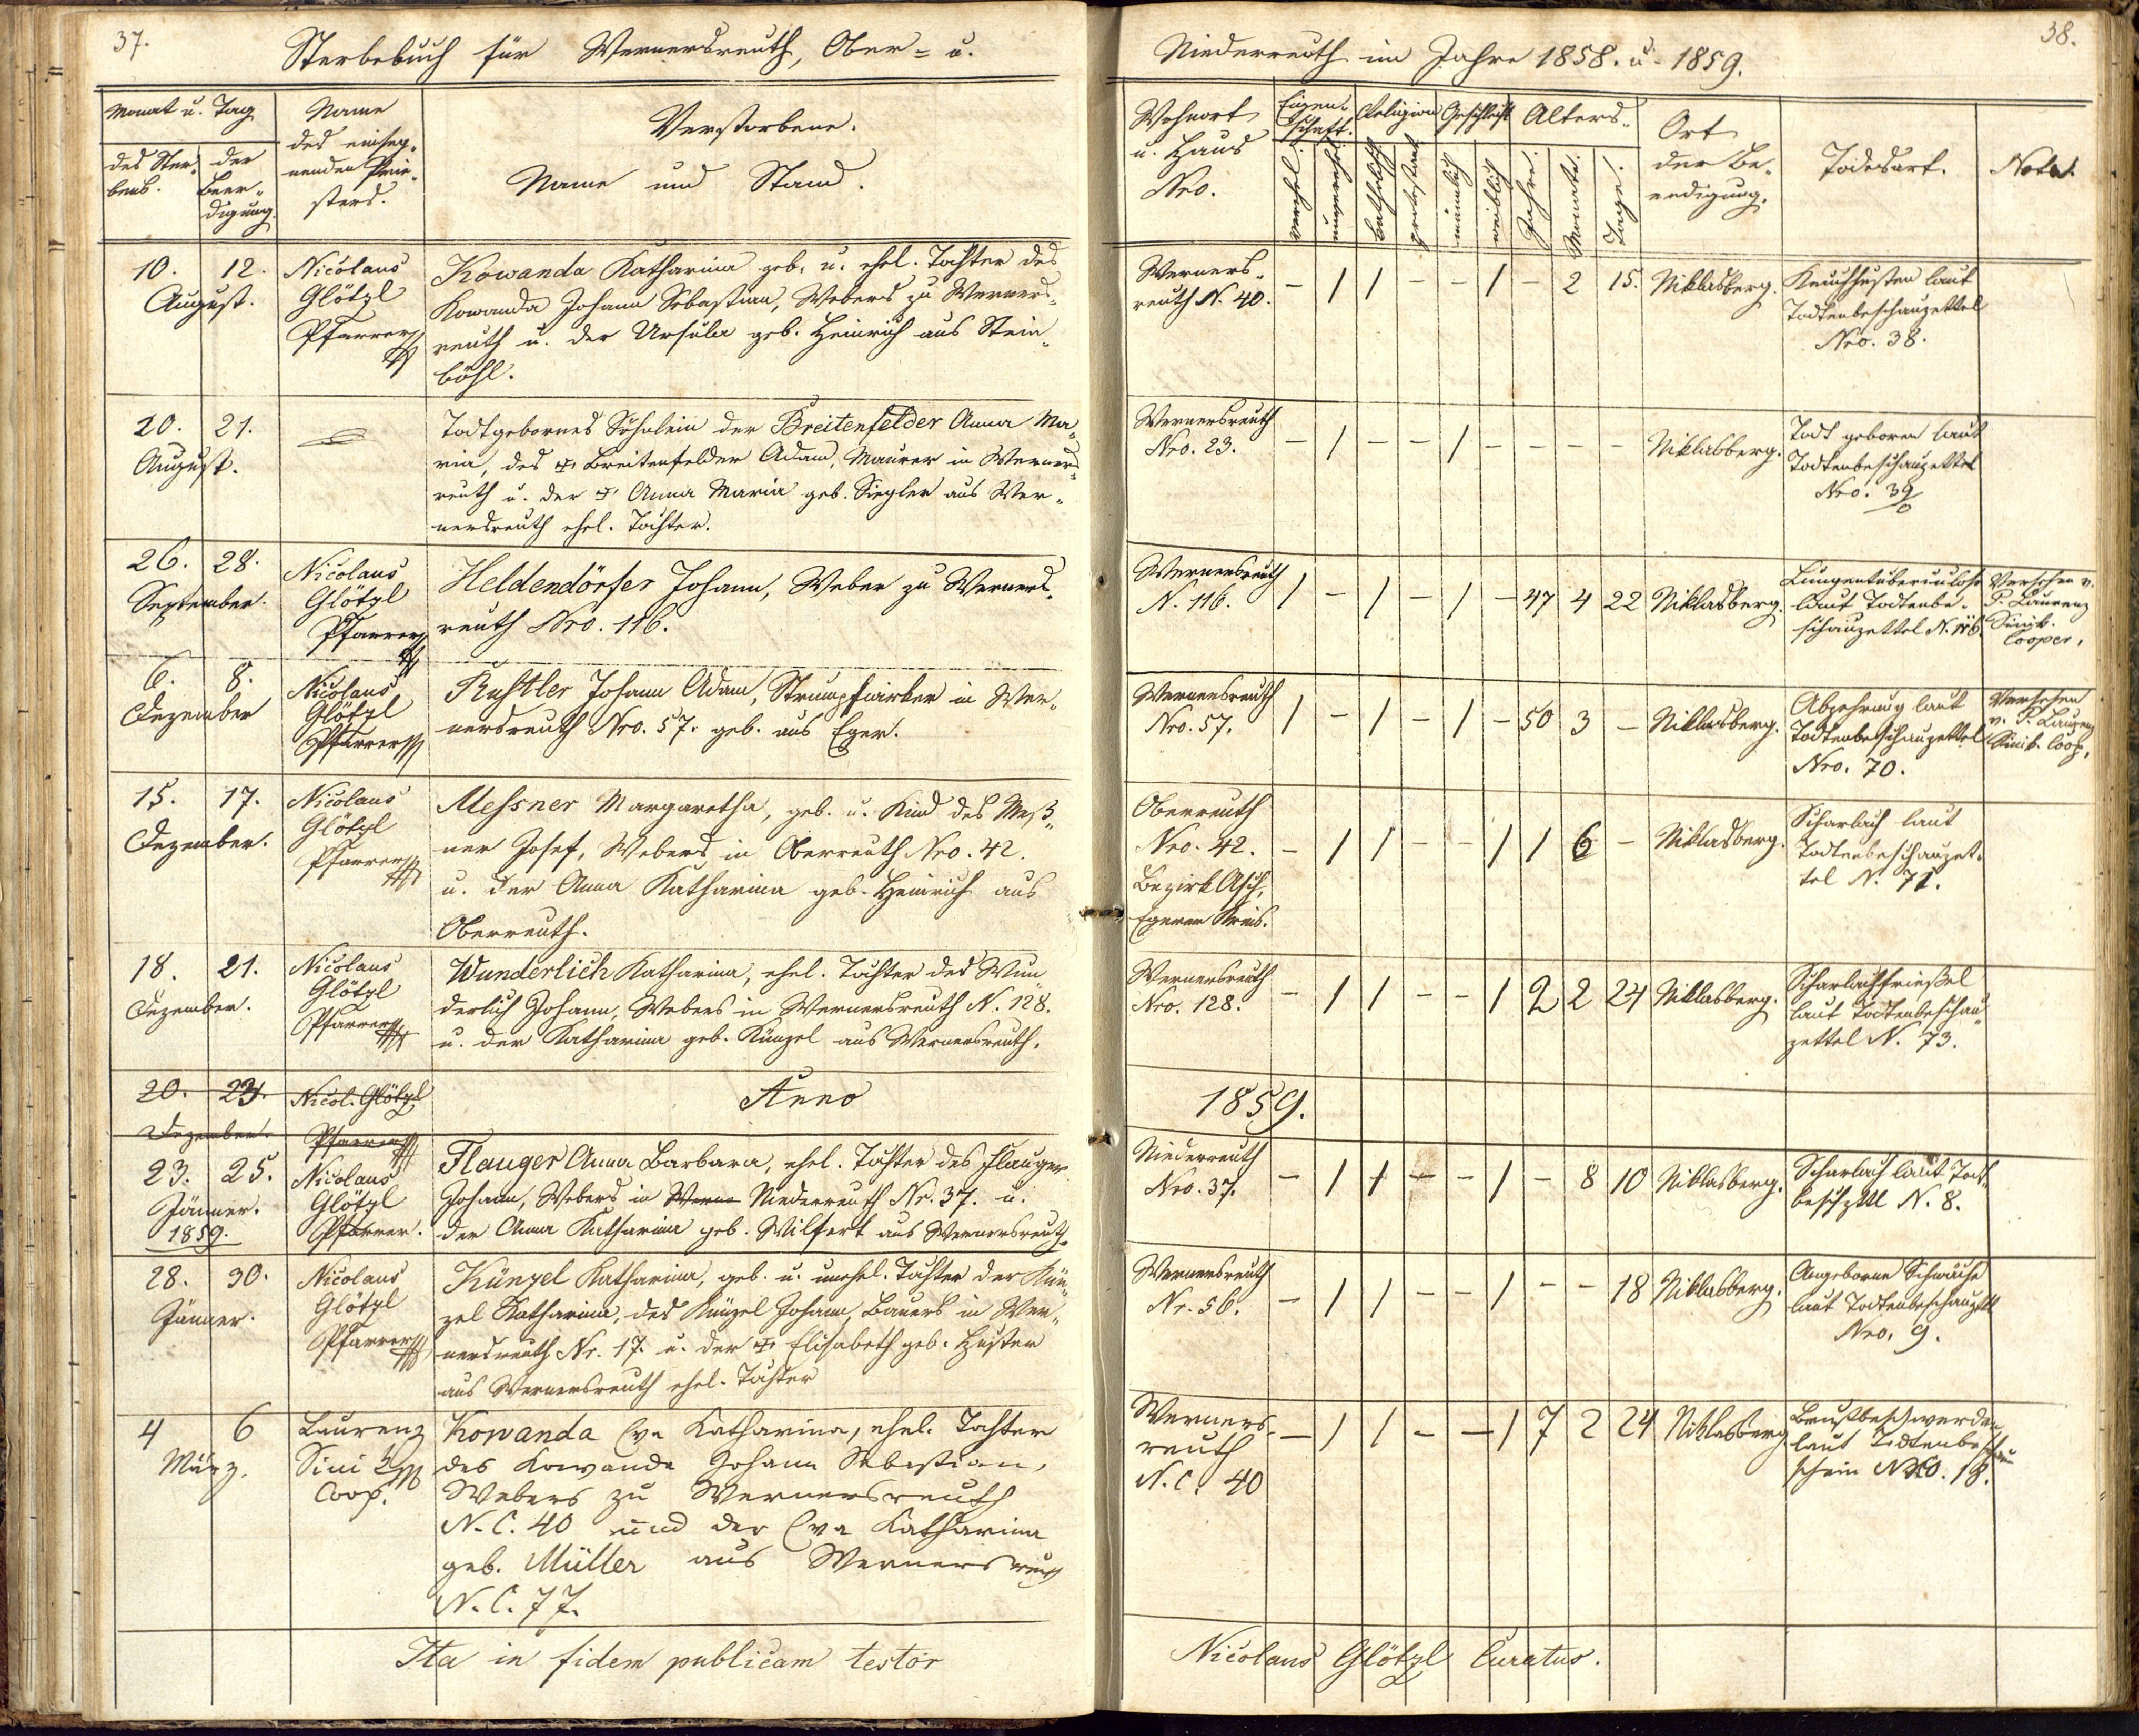 37.
Sterbebuch für Wernersreuth, Ober= u.
Monat u. Tag
des Ster-
bens.
der
Beer-
digung.
Name
des einseg-
nenden Prie-
sters.
Verstorbene.
Name und Stand.
10. 12.
August.
Nicolaus
Glötzl
Pfarrer
Kowanda Katharina geb. u. ehel. Tochter des
Kowanda Johann Sebastian, Webers zu Werners-
reuth u. der Ursula geb. Heinrich aus Stein-
böhl.
20. 21.
August.
Todtgebornes Söhnlein der Breitenfelder Anna Ma-
ria, des Breitenfelder Adam, Maurer in Werners-
reuth u. der Anna Maria geb. Siegler aus Wer-
nersreuth ehel. Tochter.
26. 28.
September.
Nicolaus
Glötzl
Pfarrer
Heldendörfer Johann, Weber zu Werners-
reuth Nro. 116.
6. 8.
Dezember
Nicolaus
Glötzl
Pfarrer
Rustler Johann Adam, Strumpfwirker in Wer-
nersreuth Nro. 57. geb. aus Eger.
15. 17.
Dezember.
Nicolaus
Glötzl
Pfarrer
Messner Margaretha, geb. u. Kind des Meß-
ner Josef, Webers in Oberreuth Nro. 42.
u. der Anna Katharina geb. Heinrich aus
Oberreuth.
18. 21.
Dezember.
Nicolaus
Glötzl
Pfarrer
Wunderlich Katharina, ehel. Tochter des Wun
derlich Johann, Webers in Wernersreuth N. 128.
u. der Katharina geb. Künzel aus Wernersreuth.
20. 23.
Dezember.
Nicol. Glötzl
Pfarrer
Anno
23. 25.
Jänner.
1859.
Nicolaus
Glötzl
Pfarrer.
Flauger Anna Barbara, ehel. Tochter des Flauger
Johann, Webers in Werne Niederreuth Nr. 37. u.
der Anna Katharina geb. Wilfert aus Wernersreuth.
28. 30.
Jänner.
Nicolaus
Glötzl
Pfarrer
Künzel Katharina, geb. u. unehel. Tochter der Kün-
zel Katharina, des Künzel Johann, Bauers in Wer-
nersreuth Nr. 17. u. der Elisabeth geb. Huster
aus Wernersreuth ehel. Tochter
4 6
März.
Laurenz
Sinik
Coop.
Kowanda Eva Katharina, ehel. Tochter
des Kowanda Johann Sebastian,
Webers zu Wernersreuth
N.C. 40 und der Eva Katharina
geb. Müller aus Wernersreuth
N.C. 77.
Ita in fidem publicam testor
38.
Niederreuth im Jahre 1858. u. 1859.
Wohnort
u. Haus
Nro.
Eigen-
schaft.
verehel.
unverehel.
Religion
katholisch
protestant
Geschlecht
männlich
weiblich
Alters-
Jahre.
Monate.
Tage.
Ort
der Be-
erdigung.
Todesart.
Nota.
Werners-
reuth N. 40.
- 1 1 - - 1 - 2 15. Niklasberg.
Keuchhusten laut
Todtenbeschauzettel
Nro. 38.
Wernersreuth
Nro. 23.
- 1 - - 1 - - - - Niklasberg.
Todt geboren laut
Todtenbeschauzettel
Nro. 39
Wernersreuth
N. 116.
1 - 1 - 1 - 47 4 22 Niklasberg.
Lungentuberculose
laut Todtenbe-
schauzettel N.
Versehen v.
P. Laurenz
Sinik.
Cooper.
Wernersreuth
Nro. 57.
1 - 1 - 1 - 50 3 - Niklasberg.
Abzehrung laut
Todtenbeschauzettel
Nro. 70.
Versehen
v. P. Laurenz
Sinik. Coop.
Oberreuth
Nro. 42.
Bezirk Asch,
Egerer Kreis.
- 1 1 - - 1 1 6 - Niklasberg.
Scharlach laut
Todtenbeschauzet-
tel N. 71.
Wernersreuth
Nro. 128.
- 1 1 - - 1 2 2 24 Niklasberg.
Scharlachfrießel
laut Todtenbeschau
zettel N. 73.
1859.
Niederreuth
Nro. 37.
- 1 1 - - 1 - 8 10 Niklasberg.
Scharlach laut Todt-
beschzttl N. 8.
Wernersreuth
Nr. 56.
- 1 1 - - 1 - - 18 Niklasberg.
Angeborne Schwäche
laut Todtenbeschauzttl
Nro. 9.
Werners-
reuth
N.C. 40
- 1 1 - - 1 7 2 24 Niklasberg
Brustbeschwerden
laut Todtenbeschau
schein Nro. 18.
Nicolaus Glötzl Curatus.